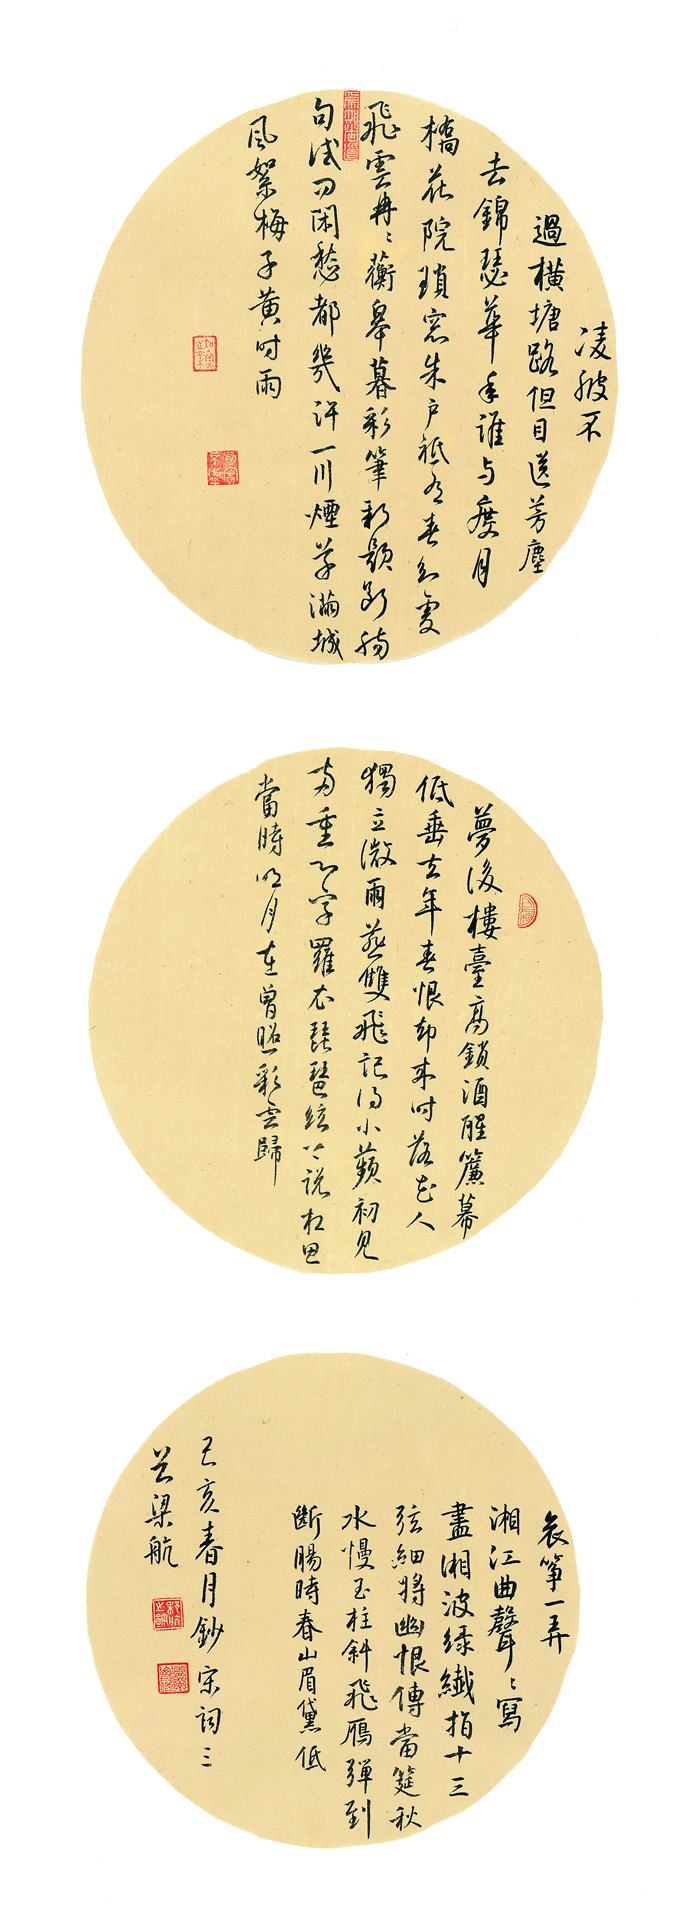 凌波不
過橫塘路但目送芳塵
去錦瑟華年誰与度月
橋花院瑣窓朱戶祗有春知處
飛雲冉〻蘅皋暮彩筆新題斷腸
句試問閑愁都幾許一川煙草滿城
風絮梅子黄時雨
夢後樓臺高鎖酒醒簾幕
低垂去年春恨却來時落花人
獨立微雨燕雙飛記得小蘋初見
兩重心字羅衣琵琶絃上説相思
當時明月在曾照彩雲歸
哀箏一弄
湘江曲聲〻寫
盡湘波緑纖指十三
弦細將幽恨傳當筵秋
水慢玉柱斜飛鴈彈到
斷腸時春山眉黛低
己亥春月鈔宋詞三
首梁航